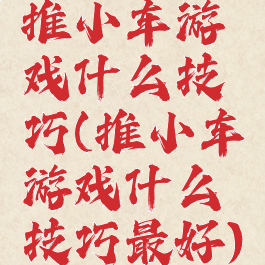 推小车游
戏什么技
巧(推小车
游戏什么
技巧最好)